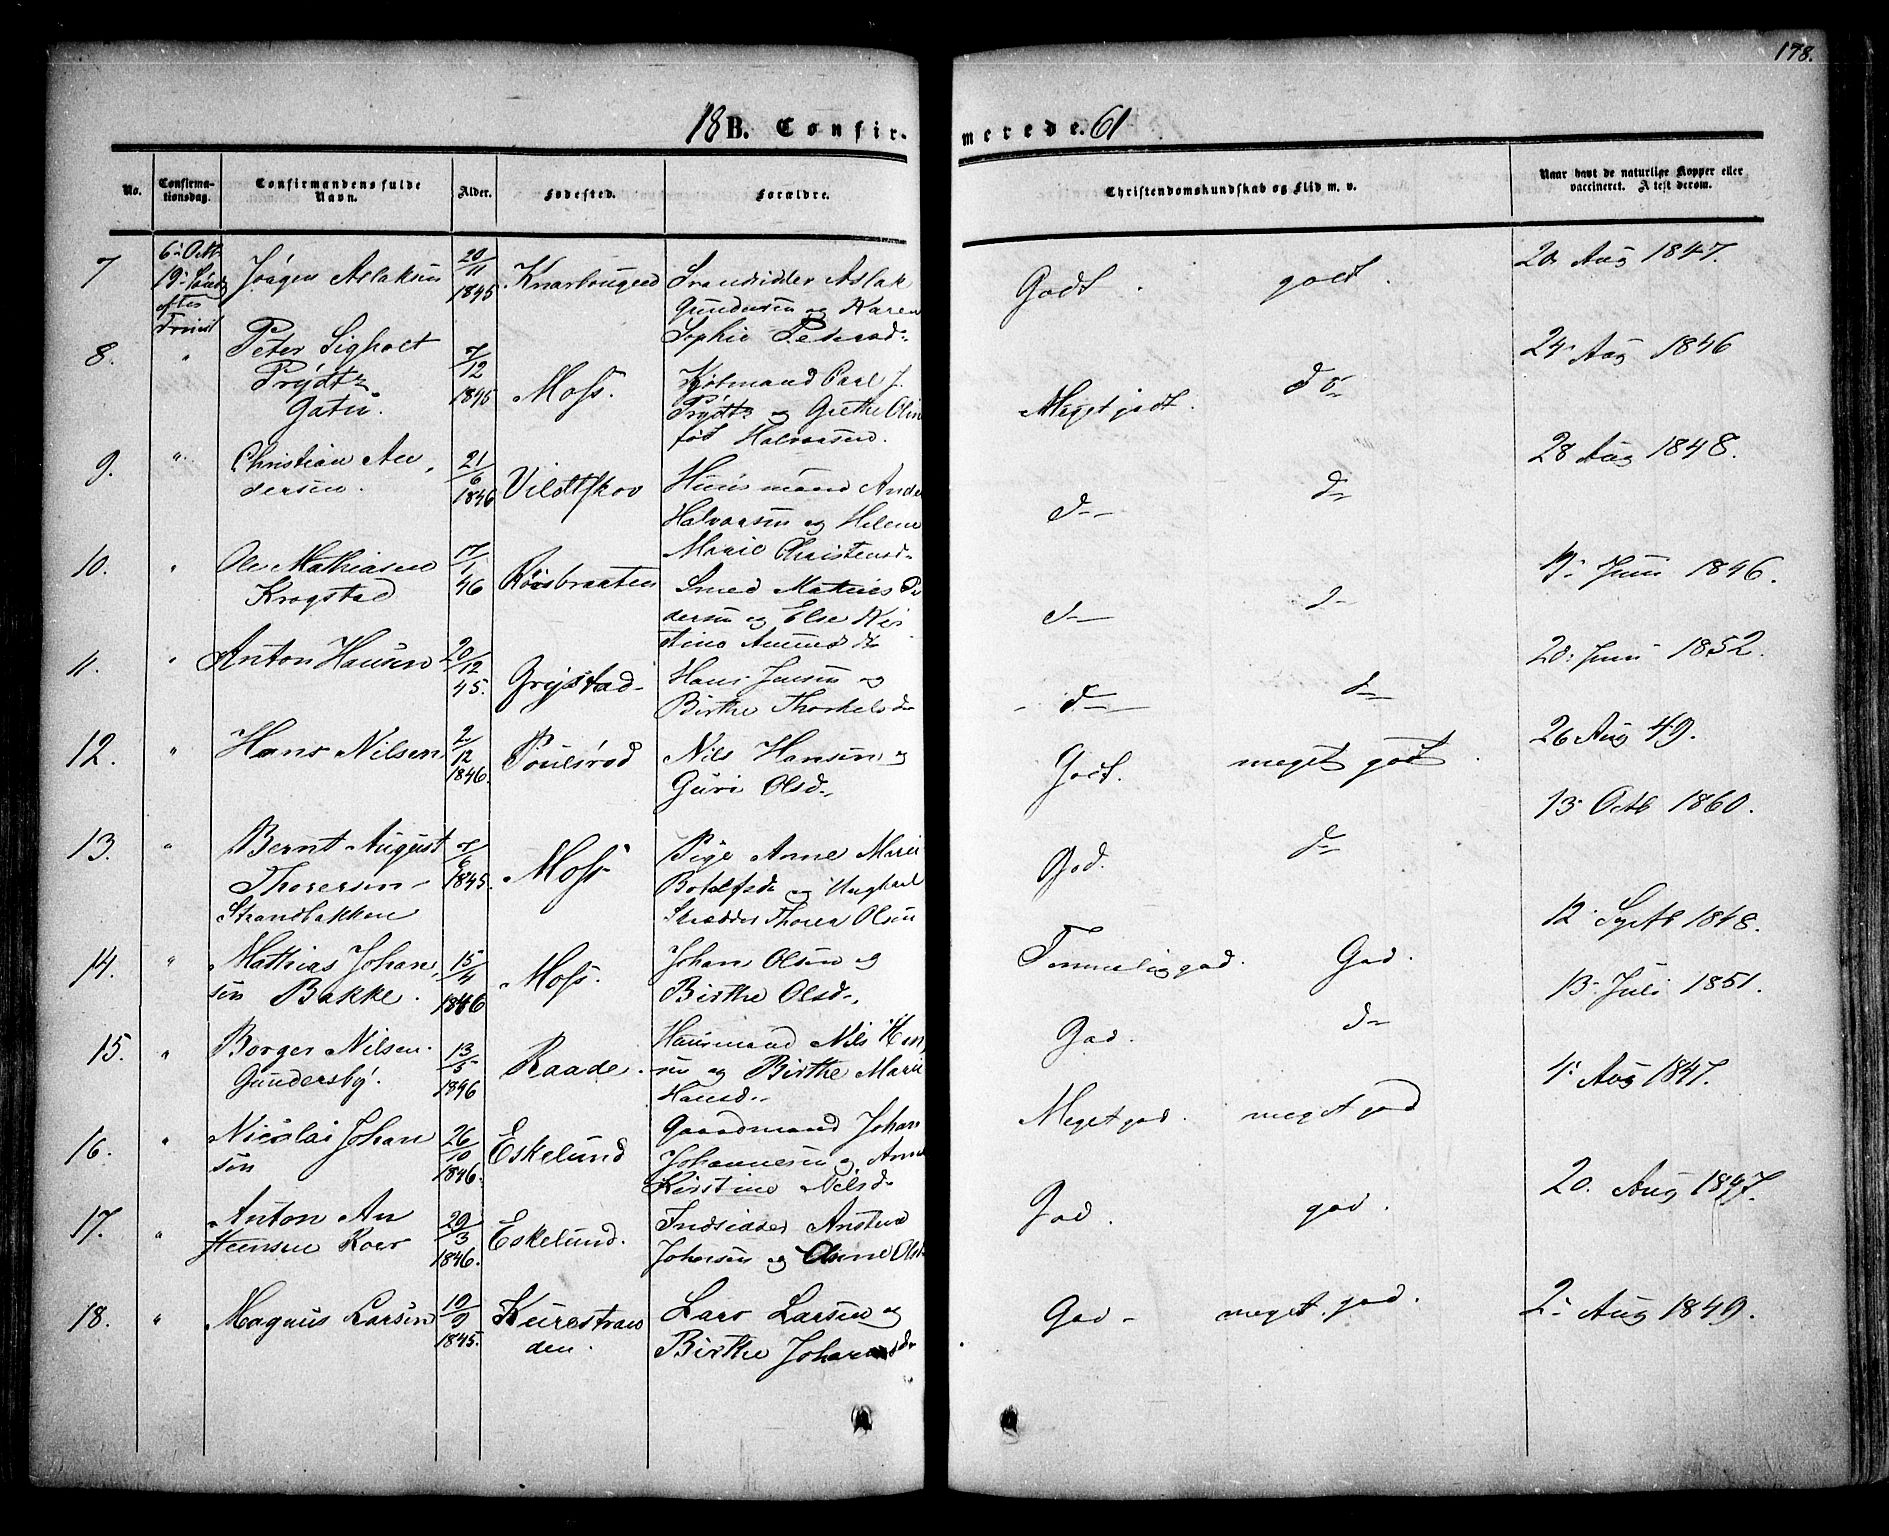 178.
18 B. Confirmerede. 61
No.
Confirmationsdag.
Confirmandens fulde Navn.
Alder.
Fødested.
Forældre.
Christendomskundskab og Flid m. v.
Naar havt de naturlige Kopper eller vaccineret. Attest derom.
7 6: Octb. 19: Sønd. efter Trinit Jørgen Aslaksen 20/11 1845 Strandsidder Aslak
Gundersen og Karen
Sophie Pedersd. Godt. godt. 20. Aug 1847.
8. " Peter Sigholt
Prydtz
7/12 1845 Moss. Kjøbmand Carl J.
Prydtz og Grethe Olin
fød Halvorsen. Meget godt. do 24 Aug 1846
9. " Christian An
dersen. 21/6 1846 Vildtskov Huusmand Ande
Halvorsen og Helene
Marie Christensd. d- d- 28 Aug 1848.
10. " Ole Mathiasen
Krogstad 17/1 46 Roisbraaten Smed Mathis Pe
dersen og Else Kir
stine Amundsd d- d- 19: Juni 1846.
11. " Anton Hansen 20/12 45. Grystad Hans Jensen og
Birthe Thorkelsd d- d- 20: Juni 1852.
12. " Hans Nilsen 2/12 1846. Poulsrød Nils Hansen og
Guri Olsd. Godt. meget godt. 26 Aug 49.
13. " Bernt August
Thoresen
Strandbakken 7/6 1845. Moss Pige Anne Marie
Botolfsd og Ungkarl
Skrædder Thorer Olsen God. d- 13 Octb 1860.
14. " Mathias Johan
sen Bakke. 15/4 1846 Moss. Johan Olsen og
Birthe Olsd. Temmelig god. God. 12 Septb 1848.
15. " Borger Nilsen
Gundersby. 13/5 1846 Raade. Huusmand Nils Han
sen og Birthe Marie
Hansd. God. d- 13 Juli 1851.
16. " Nicolai Johan
sen 26/10 1846. Eskelund Gaardmand Johan
Johannesen og Anne
Kirstine Nilsd Meget god. meget god 1: Aug 1847.
17. " Anton An
Koer 29/3 1846. Eskelund. Indsidder
Johansen og Anne Olsd God. god. 20. Aug 1847.
18. " Magnus Larsen 19/9 1845. Kurestran
den. Lars Larsen og
Birthe God meget god. 2: Aug 1849.